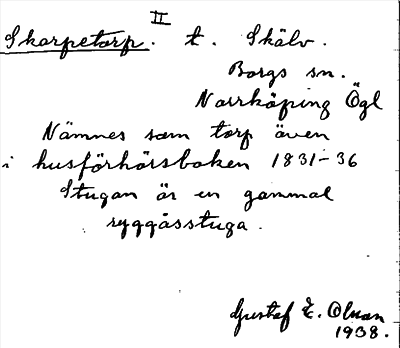 II
Skarpetorp. t. Skälv.
Borgs sn.
Norrköping Ögl
Nämnes som torp även
i husförhörsboken 1831-36
Stugan är en gammal
ryggåsstuga.
Gustaf E. Olson
1938.